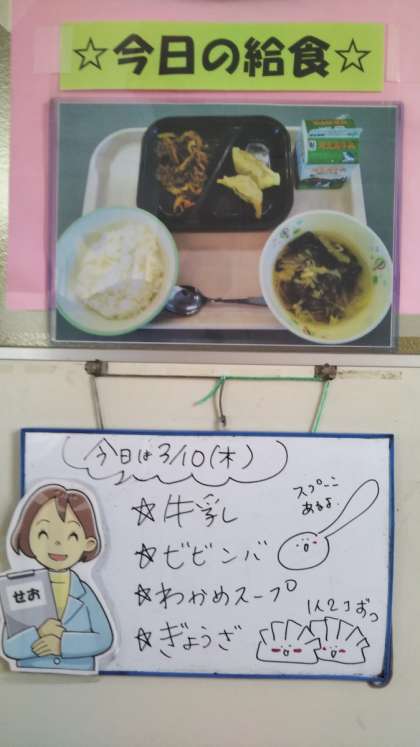 ☆今日の給食☆
今日は3/10(木)
☆牛乳
☆ビビンバ
☆わかめスープ
☆ぎょうざ
スプーン
あるよ。
1人2コずつ
せお